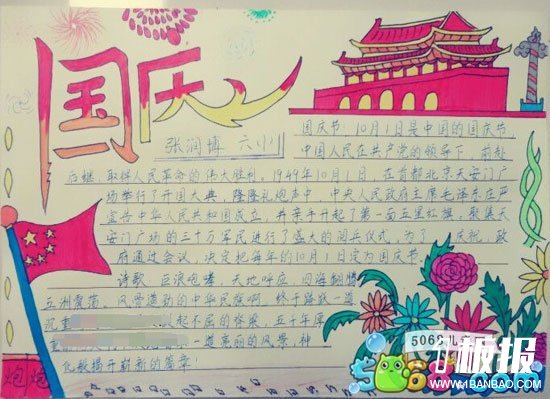 国庆
张润博 六小
国庆节:10月1日是中国的国庆节
中国人民在共产党的领导下,前赴
后继,取得人民革命的伟大胜利。1949年10月1日,在首都北京天安门广
场举行了开国大典,隆隆礼炮声中,中央人民政府主席毛泽东在严
宣告中华人民共和国成立,并亲手升起了第一面五星红旗,聚集天
安门广场的三十万军民进行了盛大的阅兵仪式,为了 庆祝,政
府通过会议,决定把每年的10月1日定为国庆节
诗歌 巨浪咆哮,天地呼应,四海翻腾
五洲震荡,风骨遒劲的中华民族啊,终于
沉重 起不屈的脊梁,五千年厚
一道亮丽的风景,神
化般揭开崭新的篇章!
炮 炮
5068儿
1板报
WWW.1BANBAO.COM